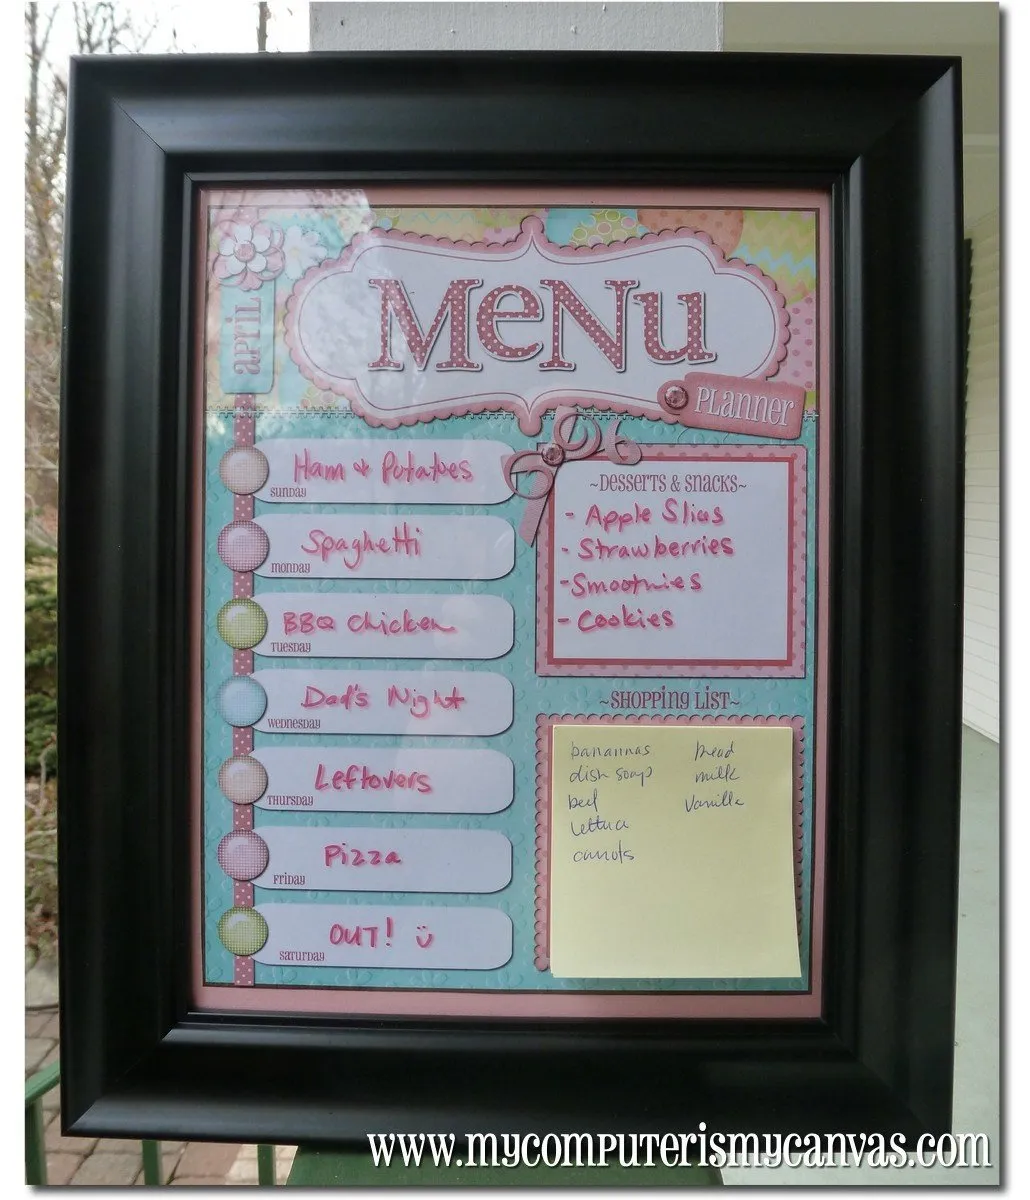 APRIL
MeNu
PLanner
Ham & Potatoes
SUNDAY
Spaghetti
MONDAY
BBQ Chicken
TUESDAY
Dad's Night
WEDNESDAY
Leftovers
THURSDAY
Pizza
FRIDAY
OUT!
SATURDAY
~DESSERTS & SNACKS~
- Apple Slices
- Strawberries
- Smoothies
- Cookies
~SHOPPING LIST~
banannas bread
dish soap milk
beef vanilla
lettuce
carrots
www.mycomputerismycanvas.com